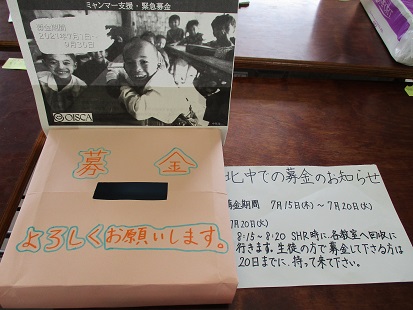 ミャンマー支援・緊急募金
募金期間
2021年7月1日～
9月30日
OISCA
募金
よろしくお願いします。
北中での募金のお知らせ
募金期間 7月15日(木)～7月20日(火)
7月20日(火)
8:15～8:20 SHR時に、各教室へ回収に
行きます。生徒の方で募金して下さる方は
20日までに、持って来て下さい。